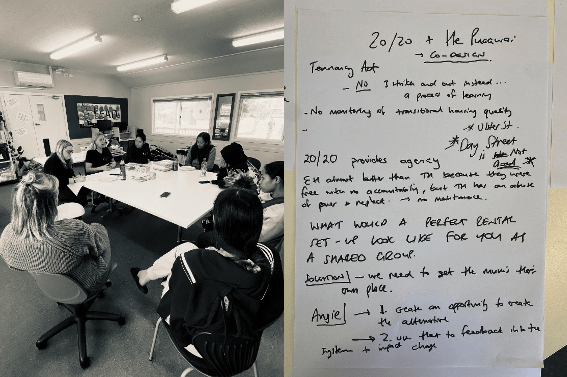 20/20 + He Puaawai
→ CO-DESIGN
Tenancy Act
- No 1 strike and out instead...
a process of learning
- No monitoring of transitional housing quality
-
* Ulster St.
* Day Street
is Not
Good *
20/20 provides agency
EH almost better than TH because they were
free with no accountability, but TH has an abuse
of power & neglect. → no maintenance.
WHAT WOULD A PERFECT RENTAL
SET-UP LOOK LIKE FOR YOU AS
A SHARED GROUP.
Solution! - we need to get the mum's their
own place.
Angle → 1. create an opportunity to create
the alternative
→ 2. use that to feedback into the
system + impact change